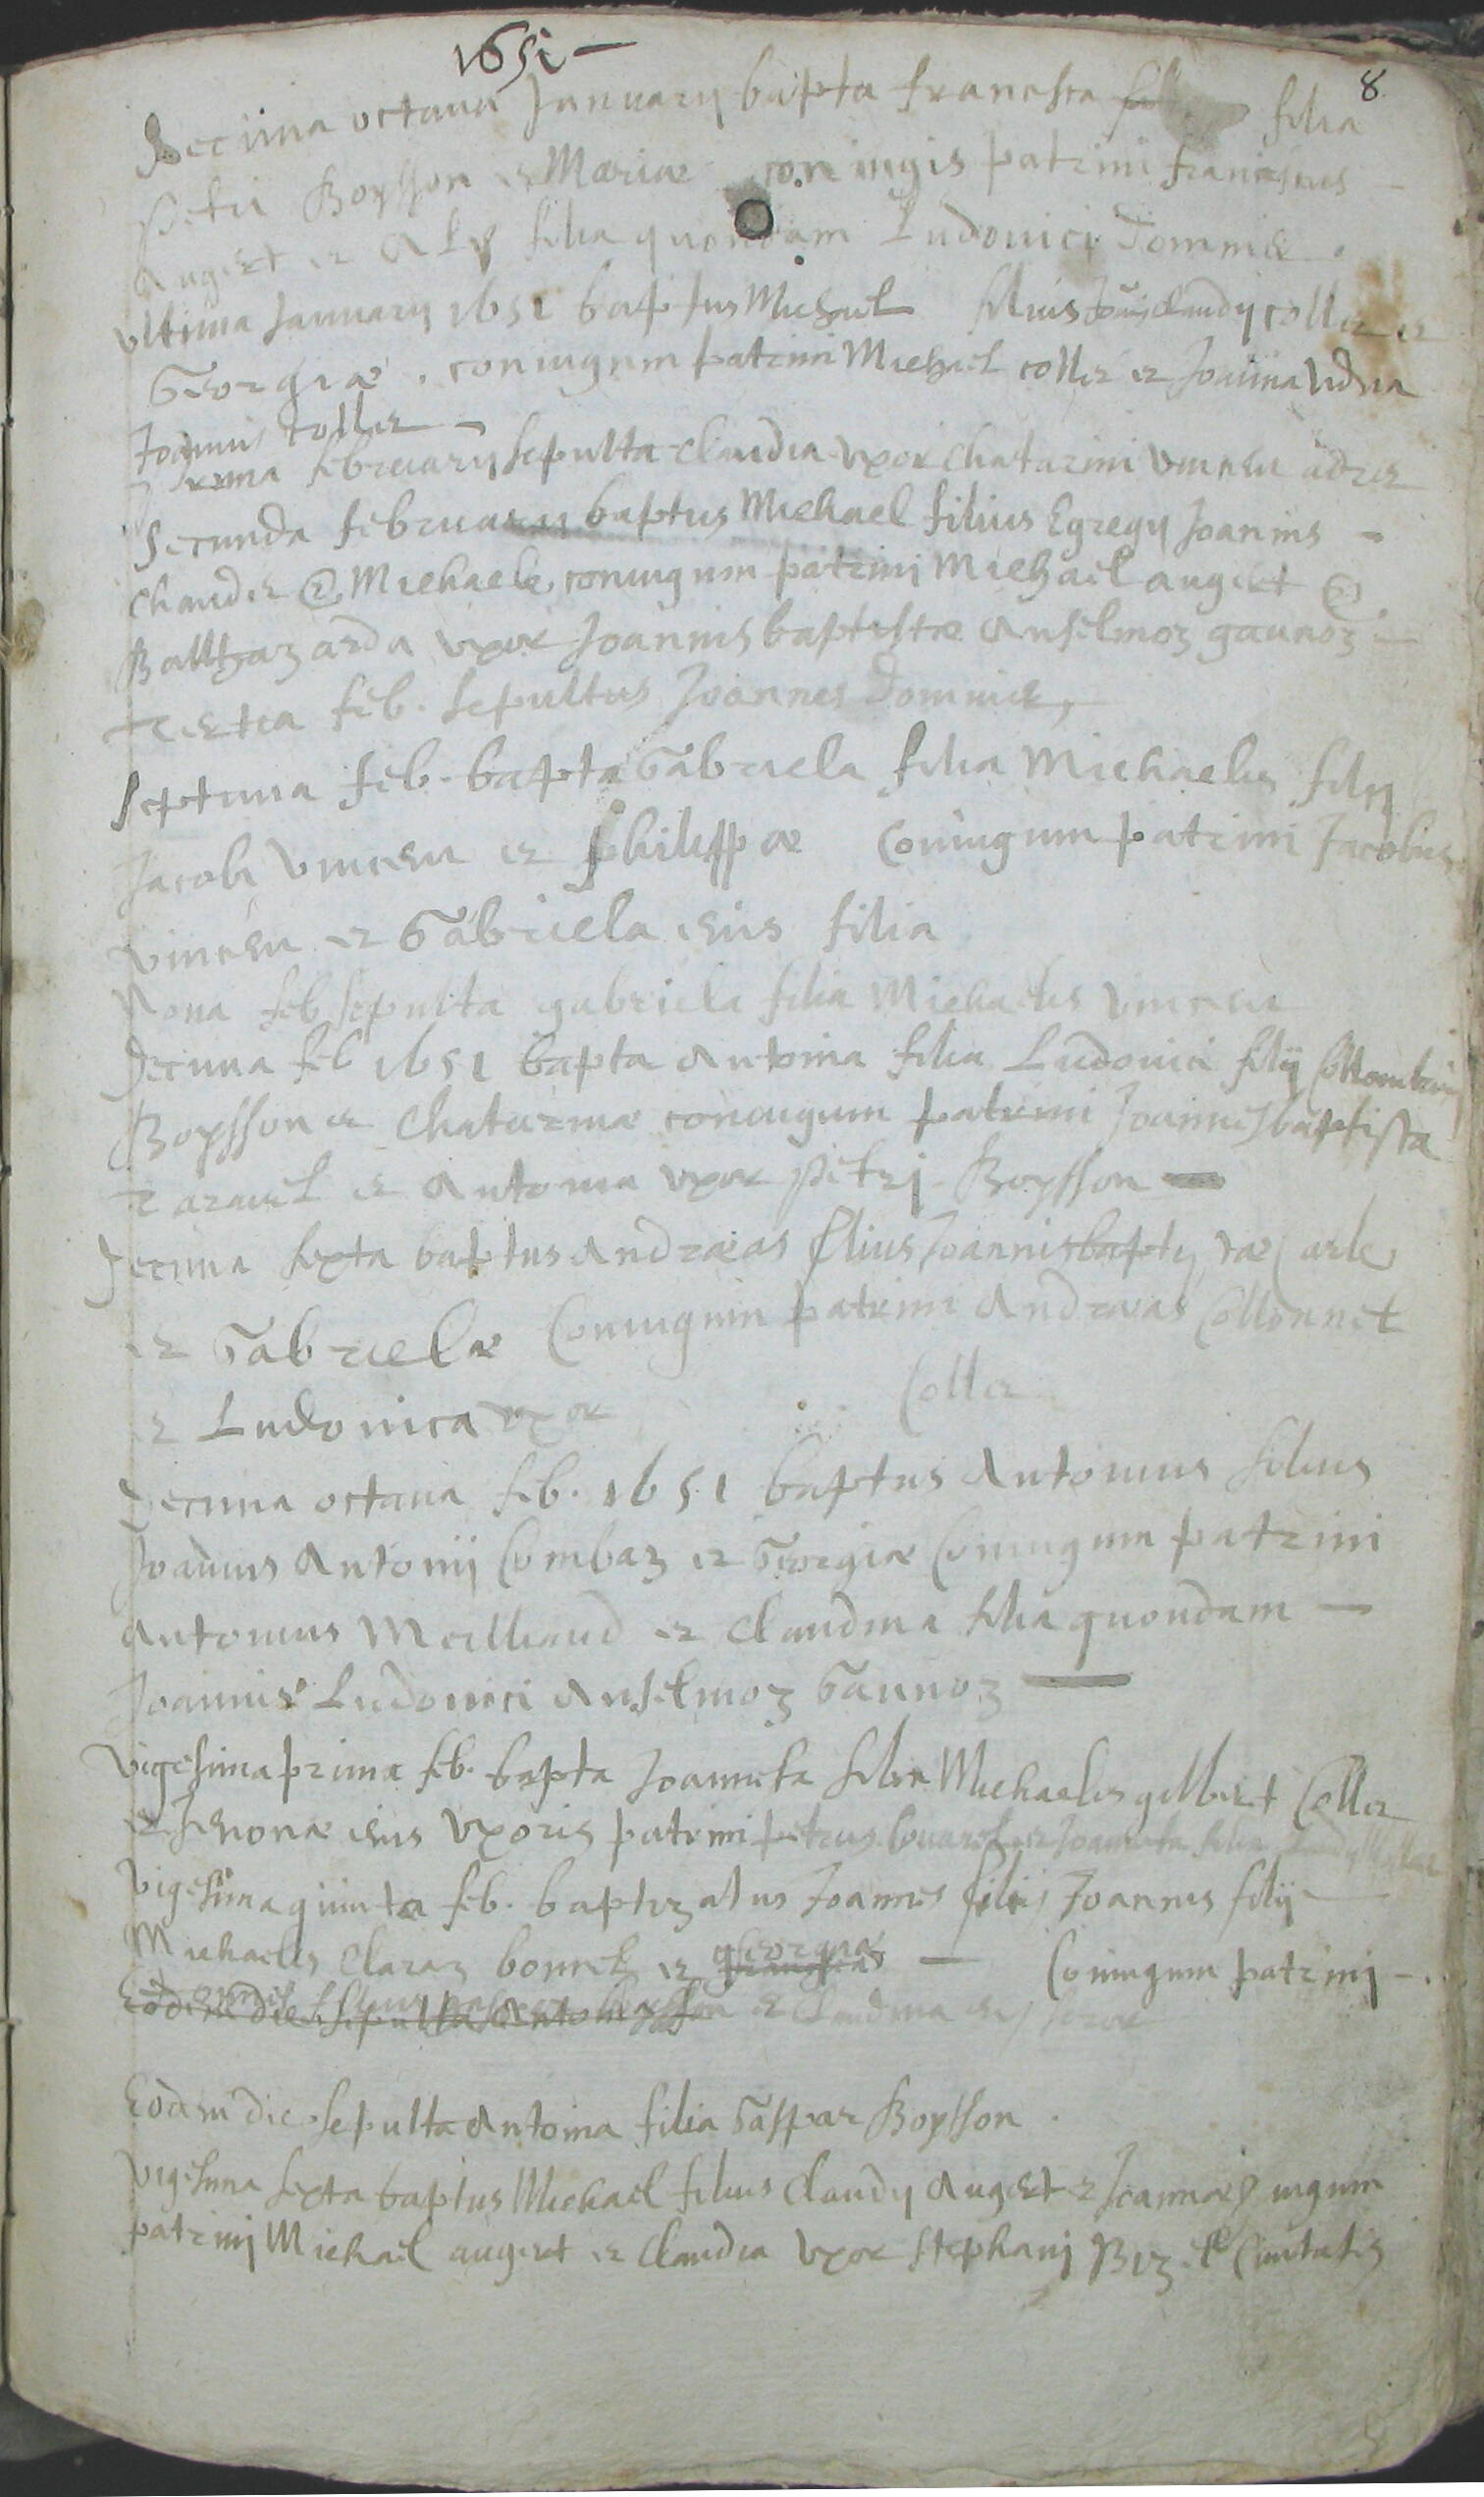 1651 -
8
Decima octava January bapta francesca filia
Petri Boysson et Mariae coniugis patrini franciscus -
Augert et Aly filia quondam Ludovici Domnie .
ultima January 1651 baptus Michael filius Claudy collet et
Georgiae . coniugum patrini Michael collet et Joanna vidua
Joannis collet -
prima february sepulta Claudia uxor Chatarini vincen
Secunda february baptus Michael filius Egregy Joannis -
Chaudet & Michaele coniugum patrinj Michael augert &
Balthazarda uxor Joannis baptistae Anselmoz gaunoz -
Tertia feb. sepultus Joannes Domnie,
Septima feb. bapta Gabriela filia Michaelis filij
Jacobi vincen et philippae Coniugum patrini Jacobus
vincen et Gabriela eius filia
Nona feb sepulta gabriela filia Michaelis vincen
Decima feb 1651 bapta Antonia filia Ludovici filij
Boysson et Chatarinae coniugum patrini Joannes baptista
et Antonia uxor Petrj Boysson -
Decima sexta baptus Andraeas filius Joannis
et Gabrielae Coniugum patrini Andraeas Collonnet
et Ludovica uxor Collet
Decima octava feb. 1651 baptus Antonius filius
Joannis Antonij Combaz et Georgiae Coniugum patrini
Antonius Meilliaud et Claudina filia quondam -
Joannis Ludovici Anselmoz Gaunoz -
Vigesima prima feb. bapta Joanneta filia Michaelis gilbert Collet
et eius uxoris patrini petrus et Joanneta filia
Vigesima quinta feb. baptizatus Joannes filius Joannis filij -
Michaelis Claraz bonnet et Georgiae - Coniugum patrinj -
Eodem die sepulta Antonia et Claudina soror
Eodem die sepulta Antonia filia Gaspar Boysson .
Vigesima sexta baptus Michael filius Claudy Augert et
patrinj Michael augert et Claudia uxor Stephanj